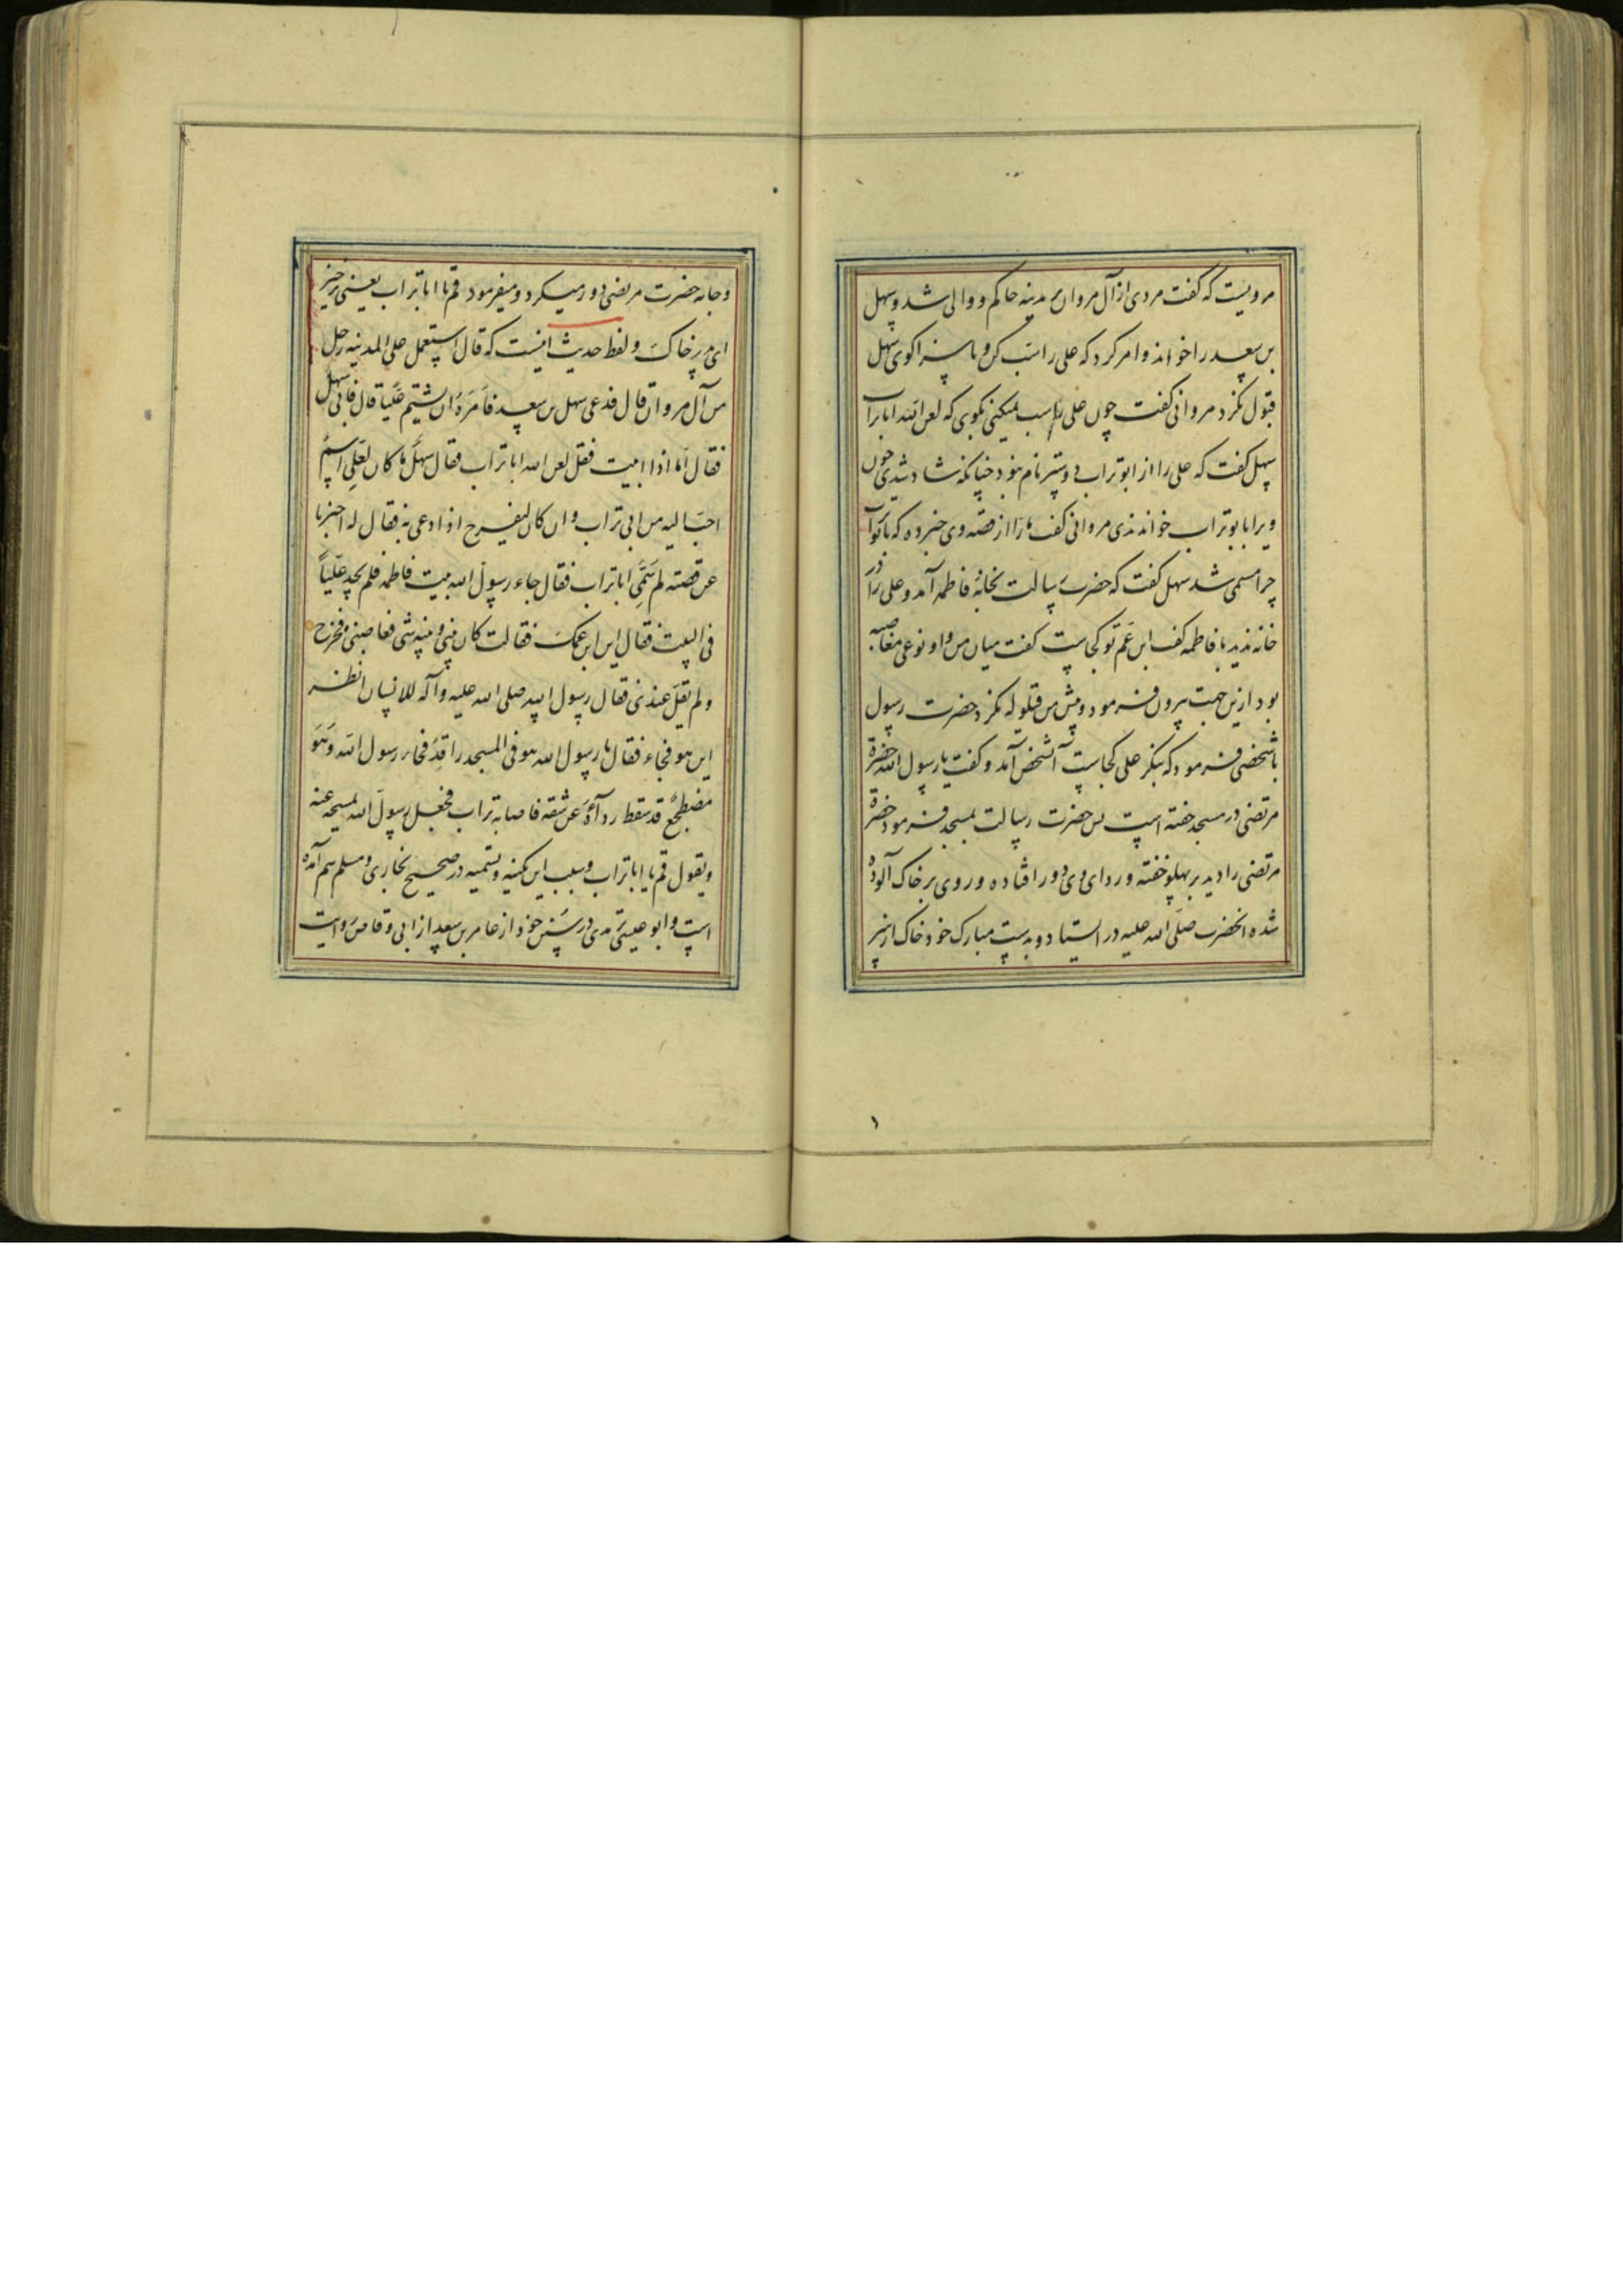 مرویست که گفت مردی از آل مروان بمدینه حاکم و والی شد و سهل
بن سعد را خواند و امر کرد که علی را سب کن و ناسزا کوی سهل
قبول نکرد مروانی گفت چون علی را سب نمیکنی بکوی که لعن الله ابا تراب
سهل کفت که علی را از ابوتراب دوستر نام نبود چنانکه شاد شدی چون
ویرا بابوتراب خواندندی مروانی کفت ما را از قصه وی خبر ده که بابوتراب
چرا مسمی شد سهل کفت که حضرت رسالت بخانهٔ فاطمه آمد و علی را در
خانه ندید با فاطمه کفت ابن عم تو کجاست کفت میان من و او نوعی مغاضبه
بود ازین جهت بیرون فرمود و پیش من قیلوله نکرد حضرت رسول
با شخصی فرمود که بنکر علی کجاست آن شخص آمد و کفت یا رسول الله حضرة
مرتضی در مسجد خفته است پس حضرت رسالت بمسجد فرمود حضرة
مرتضی را دید بر پهلو خفته و ردای وی دور افتاده و روی بر خاک آلوده
شده انحضرت صلی الله علیه در ایستاد و بدست مبارک خود خاک از سر
و جامه حضرت مرتضی دور میکرد و میفرمود قم یا ابا تراب یعنی برخیز
ای پدر خاک و لفظ حدیث اینست که قال استعمل علی المدینه رجل
من آل مروان قال فدعی سهل بن سعد فامره ان یشتم علیا قال فابی سهل
فقال اما اذا ابیت فقل لعن الله ابا تراب فقال سهل ما کان لعلی اسم
احب الیه من ابی تراب و ان کان لیفرح اذا دعی به فقال له اخبرنا
عن قصته لم سمی ابا تراب فقال جاء رسول الله بیت فاطمه فلم یجد علیاً
فی البیت فقال این ابن عمک فقالت کان بینی و بینه شی فغاضبنی فخرج
و لم یقل عندی فقال رسول الله صلی الله علیه وآله للانسان انظر
این هو فجاء فقال یا رسول الله هو فی المسجد راقد فجاء رسول الله و هو
مضطجع قد سقط رداؤه عن شقه فاصابه تراب فجعل رسول الله یمسحه عنه
و یقول قم یا ابا تراب و سبب این کنیه و تسمیه در صحیح بخاری و مسلم هم آمده
است و ابو عیسی ترمدی در سنن خود از عامر بن سعد از ابی وقاص روایت